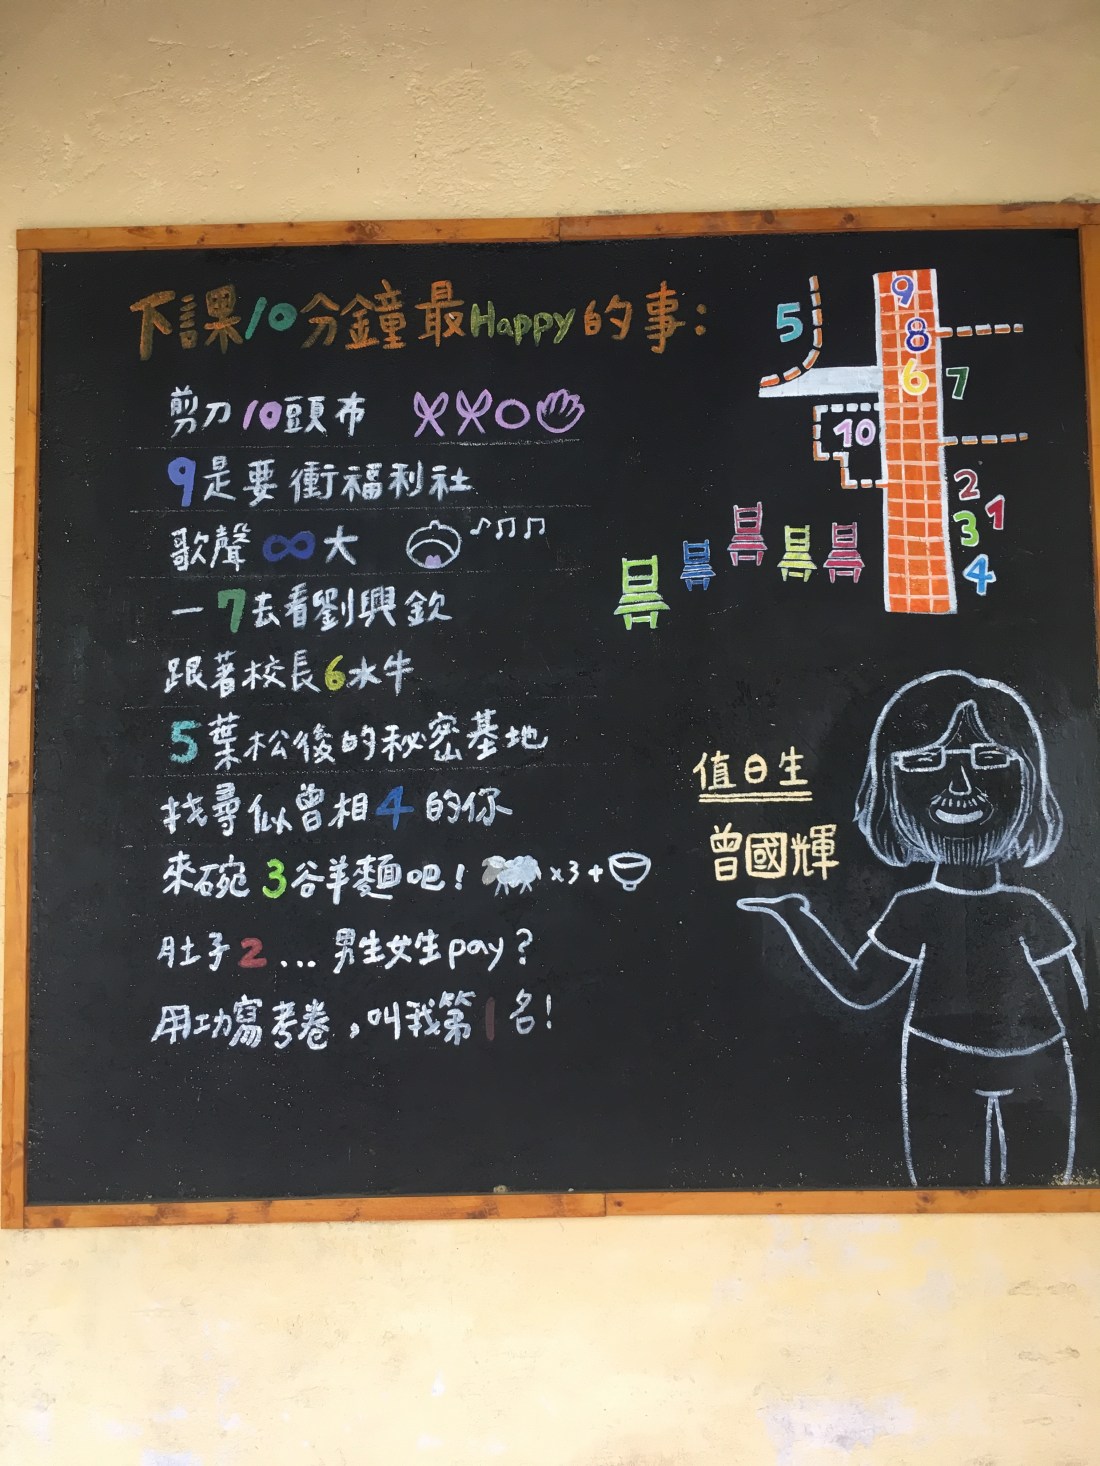 下課10分鐘最Happy的事:
剪刀10頭布
9是要衝福利社
歌聲∞大
一7去看劉興欽
跟著校長6水牛
5葉松後的秘密基地
找尋似曾相4的你
來碗3谷羊麵吧! x3+
肚子2...男生女生pay?
用功寫考卷,叫我第1名!
9
5
8
6
7
10
2
1
3
4
值日生
曾國輝